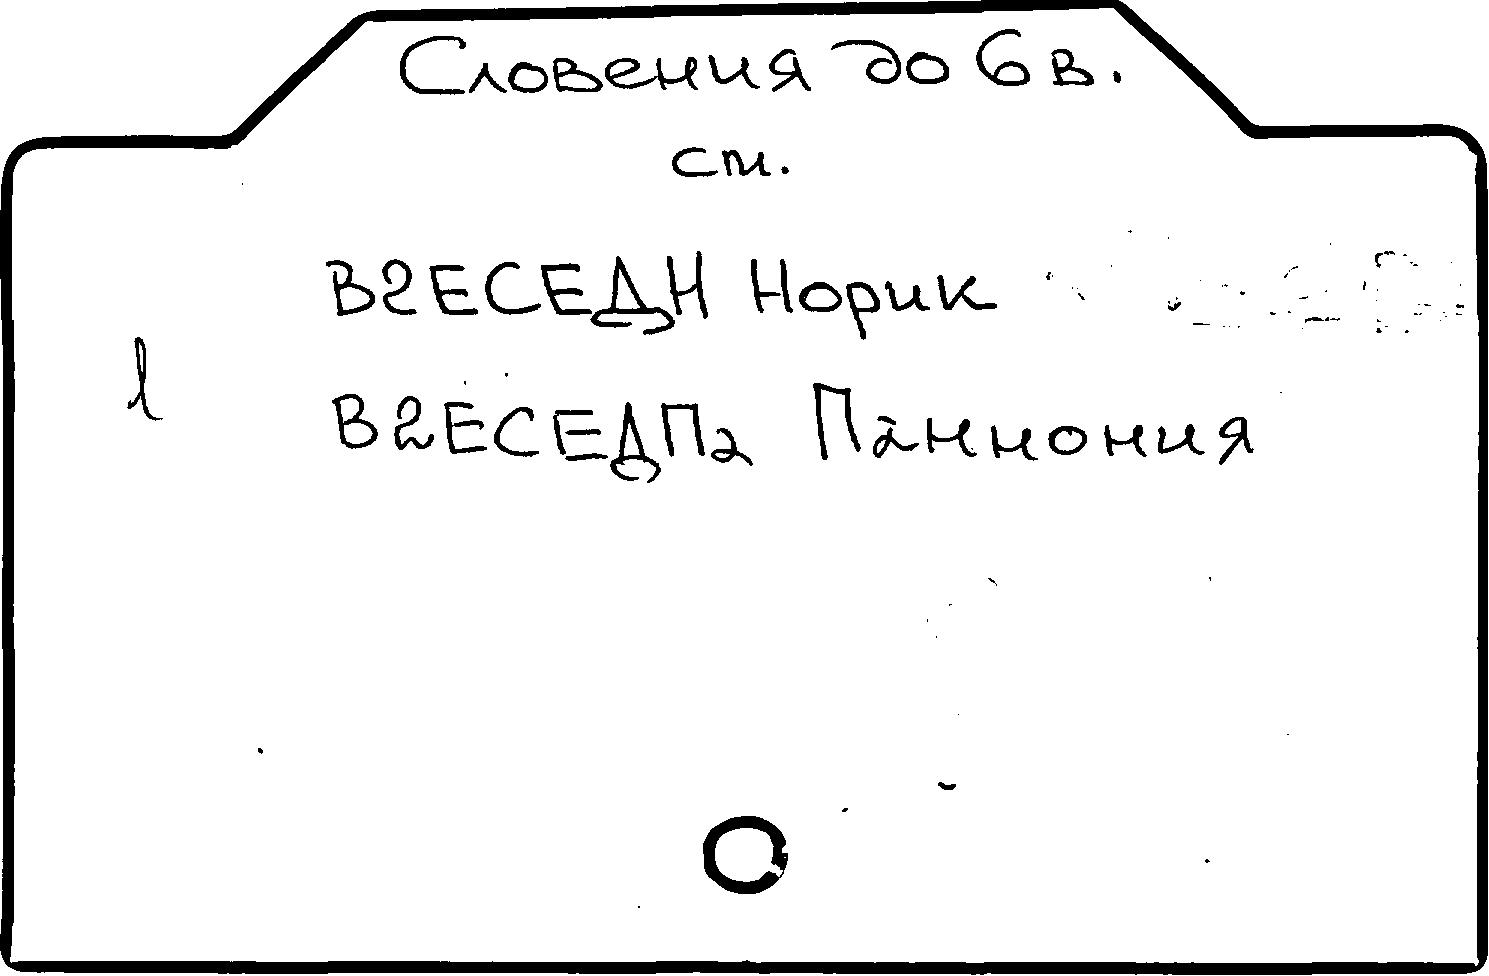 Словения до 6 в.
см.
В2ЕСЕДН Норик
В2ЕСЕДПа Паннония